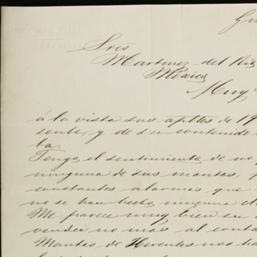 Gu
Sres
Martinez del Rio
Mexico
Muy
á la vista sus aptbs de 19
sente, y de su contenido
la
Tengo el sentimiento de no
ninguna de sus mantas, p
constantes alarmas que
no se han hecho ninguna
Me parece muy bien su
vender no mas al conta
Mantas de Hercules nos ha